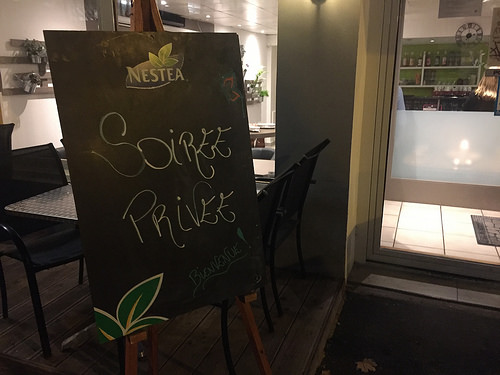 NESTEA
SOIRÉE
PRIVÉE
BIENVENUE !